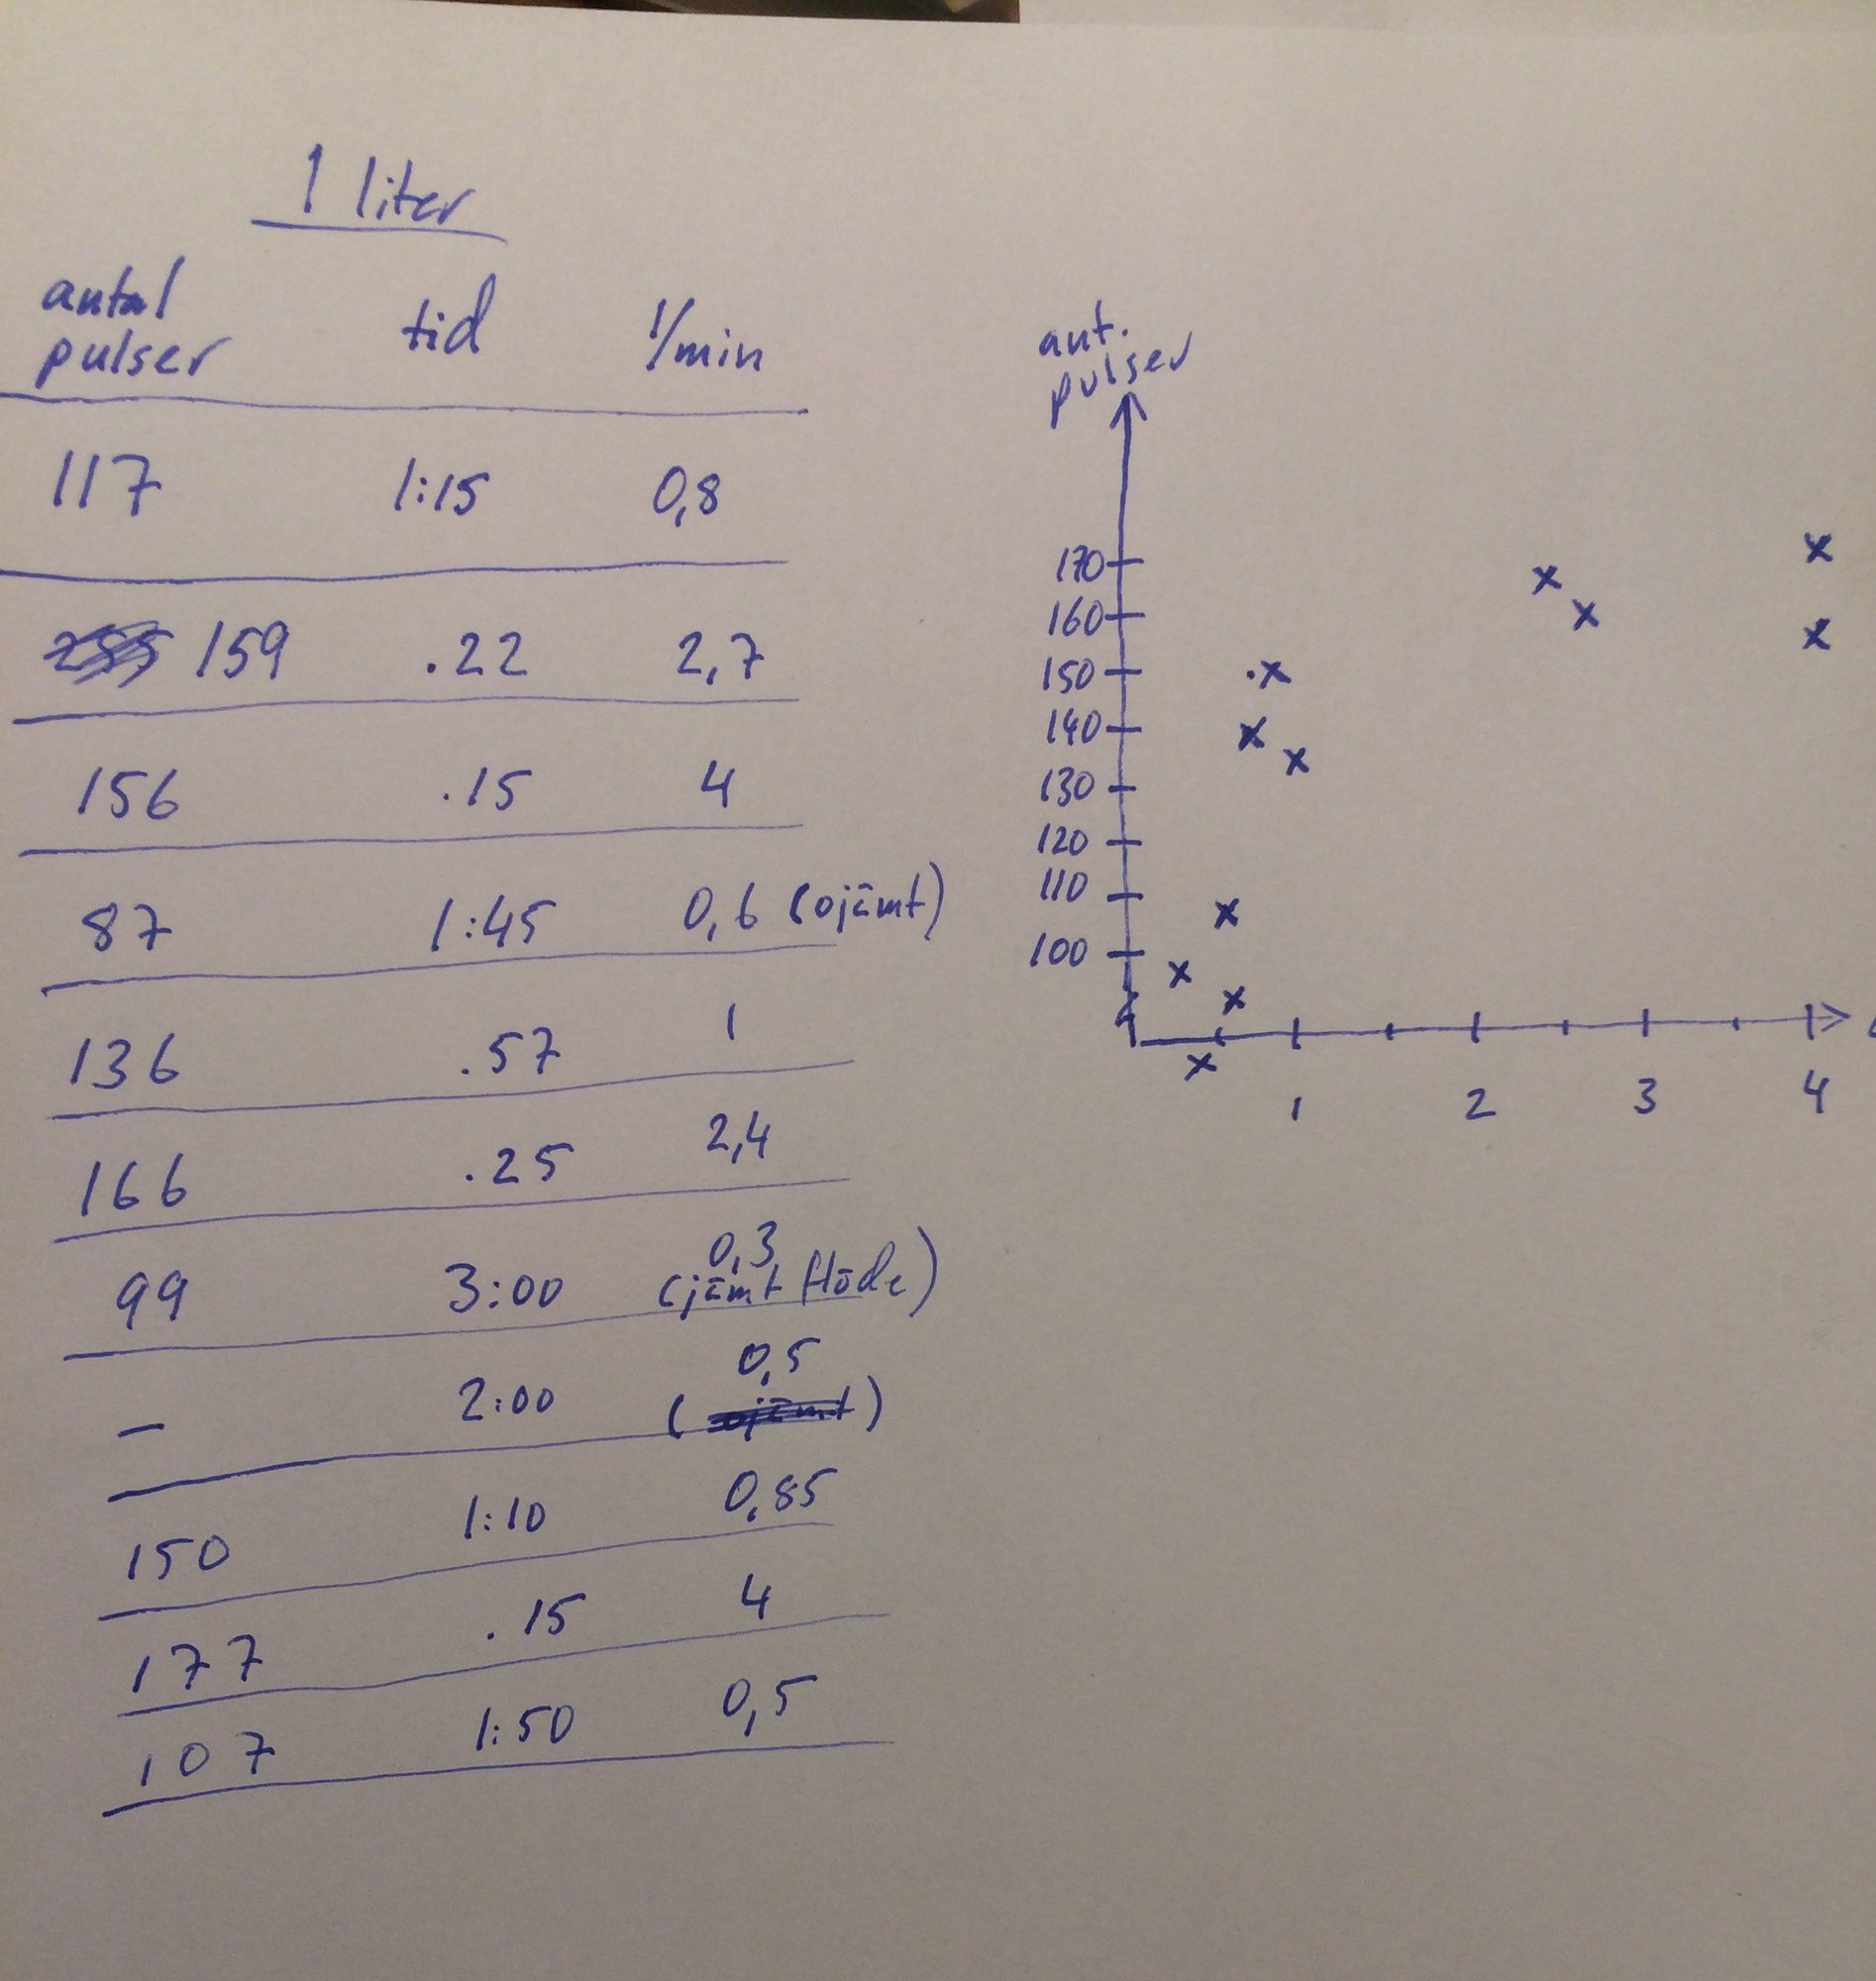 1 liter
antal pulser tid l/min
117 1:15 0,8
159 .22 2,7
156 .15 4
87 1:45 0,6 (ojämt)
136 .57 1
166 .25 2,4
99 3:00 0,3 (jämt flöde)
– 2:00 0,5 (ojämt)
150 1:10 0,85
177 .15 4
107 1:50 0,5
ant.
pulser
170
160
150
140
130
120
110
100
1 2 3 4